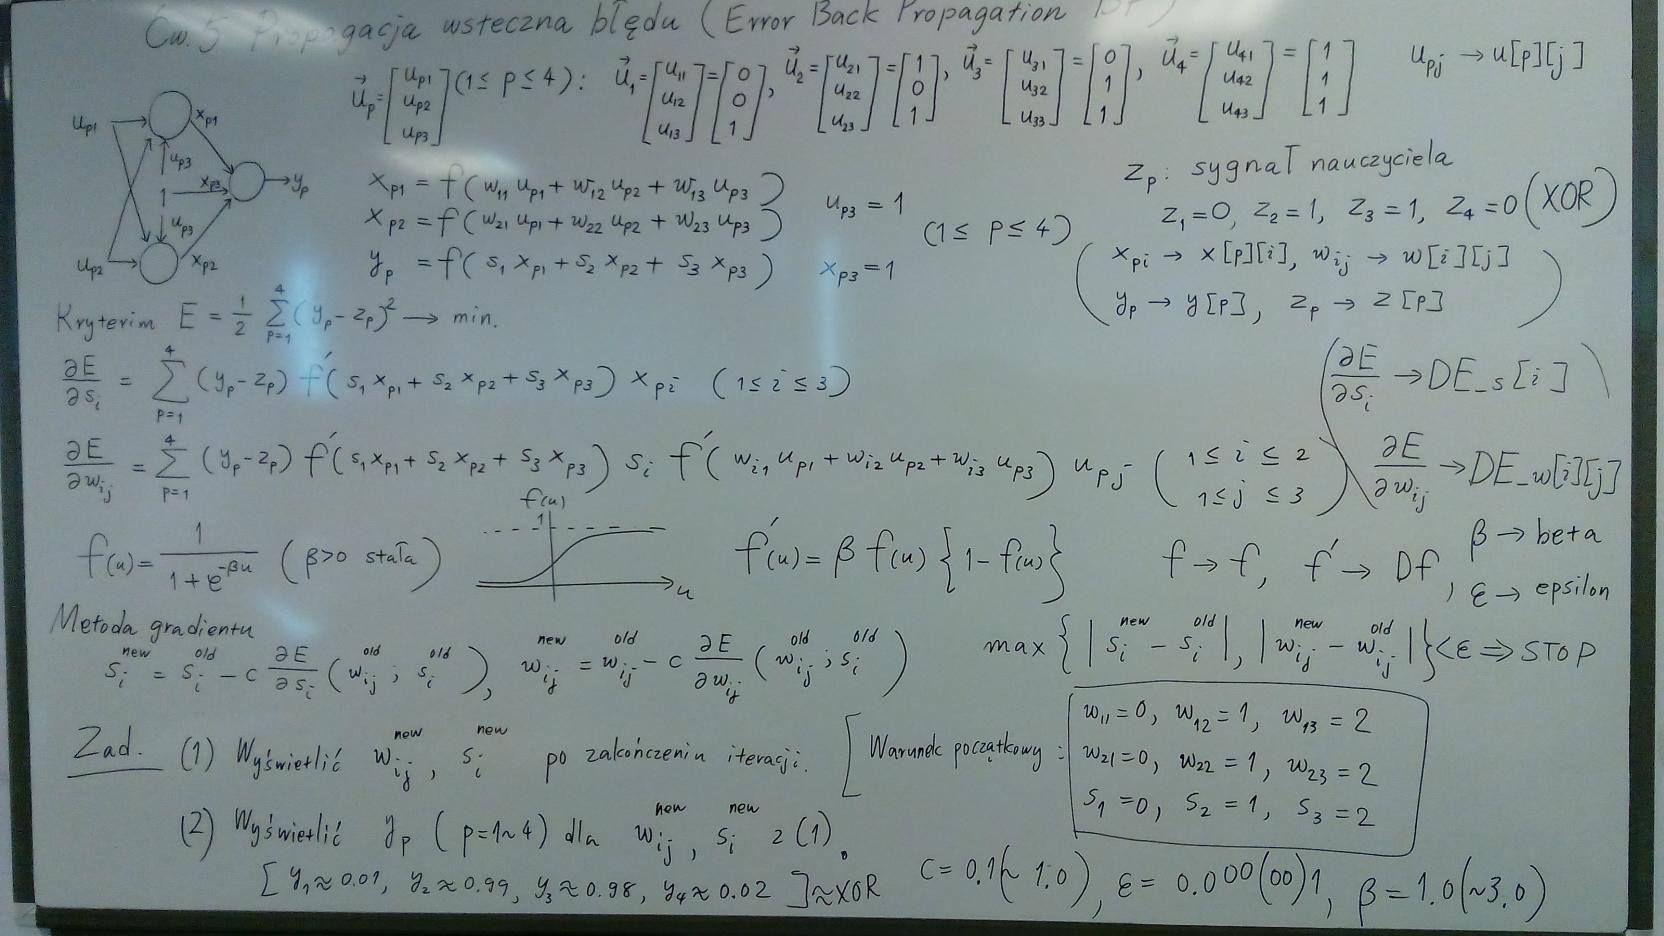 Ćw. 5 Propagacja wsteczna błędu (Error Back Propagation BP)
u⃗p = [up1 up2 up3] (1 ≤ p ≤ 4) : u⃗1 = [u11 u12 u13] = [0 0 1], u⃗2 = [u21 u22 u23] = [1 0 1], u⃗3 = [u31 u32 u33] = [0 1 1], u⃗4 = [u41 u42 u43] = [1 1 1] upj → u[p][j]
up1 xp1
up3
1 xp3 yp
up3
up2 xp2
xp1 = f(w11 up1 + w12 up2 + w13 up3)
xp2 = f(w21 up1 + w22 up2 + w23 up3)
yp = f(s1 xp1 + s2 xp2 + s3 xp3)
up3 = 1
xp3 = 1
(1 ≤ p ≤ 4)
zp : sygnał nauczyciela
z1 = 0, z2 = 1, z3 = 1, z4 = 0 (XOR)
(xpi → x[p][i], wij → w[i][j]
yp → y[p], zp → z[p])
Kryterim E = 1/2 Σ_{p=1}^{4} (yp - zp)² → min.
∂E/∂si = Σ_{p=1}^{4} (yp - zp) f′(s1 xp1 + s2 xp2 + s3 xp3) xpi (1 ≤ i ≤ 3)
(∂E/∂si → DE_s[i]
∂E/∂wij = Σ_{p=1}^{4} (yp - zp) f′(s1 xp1 + s2 xp2 + s3 xp3) si f′(wi1 up1 + wi2 up2 + wi3 up3) upj (1 ≤ i ≤ 2 1 ≤ j ≤ 3)
∂E/∂wij → DE_w[i][j])
f(u) = 1/(1 + e^{-βu}) (β>0 stała)
f(u)
1
u
f′(u) = β f(u) {1 - f(u)}
f → f, f′ → Df, β → beta
ε → epsilon
Metoda gradientu
si^new = si^old - c ∂E/∂si (wij^old ; si^old), wij^new = wij^old - c ∂E/∂wij (wij^old ; si^old)
max{|si^new - si^old|, |wij^new - wij^old|} < ε ⇒ STOP
Zad. (1) Wyświetlić wij^new, si^new po zakończeniu iteracji.
[Warunek początkowy :
w11 = 0, w12 = 1, w13 = 2
w21 = 0, w22 = 1, w23 = 2
s1 = 0, s2 = 1, s3 = 2
(2) Wyświetlić yp (p=1~4) dla wij^new, si^new z (1).
[y1 ≈ 0.01, y2 ≈ 0.99, y3 ≈ 0.98, y4 ≈ 0.02] ≈ XOR
c = 0.1(~ 1.0), ε = 0.000(00)1, β = 1.0(~3.0)